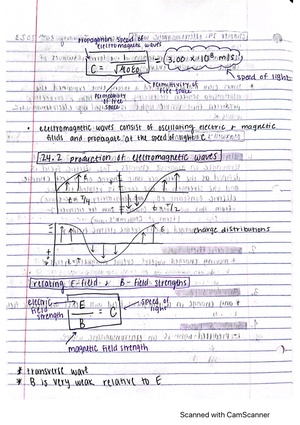 propagation speed of
electromagnetic waves
C = 1/√μ₀ε₀ = 3.00 × 10⁸ m/s
speed of light
Permeability of free space
Permittivity of free space
• electromagnetic waves consist of oscillating electric & magnetic
fields and propagate at the speed of light C
24.2 production of electromagnetic waves
E
t = T/4
t = T/2
E
charge distributions
relating E-field & B-field strengths
electric field strength
E/B = C
speed of light
magnetic field strength
* transverse wave
* B is very weak relative to E
Scanned with CamScanner